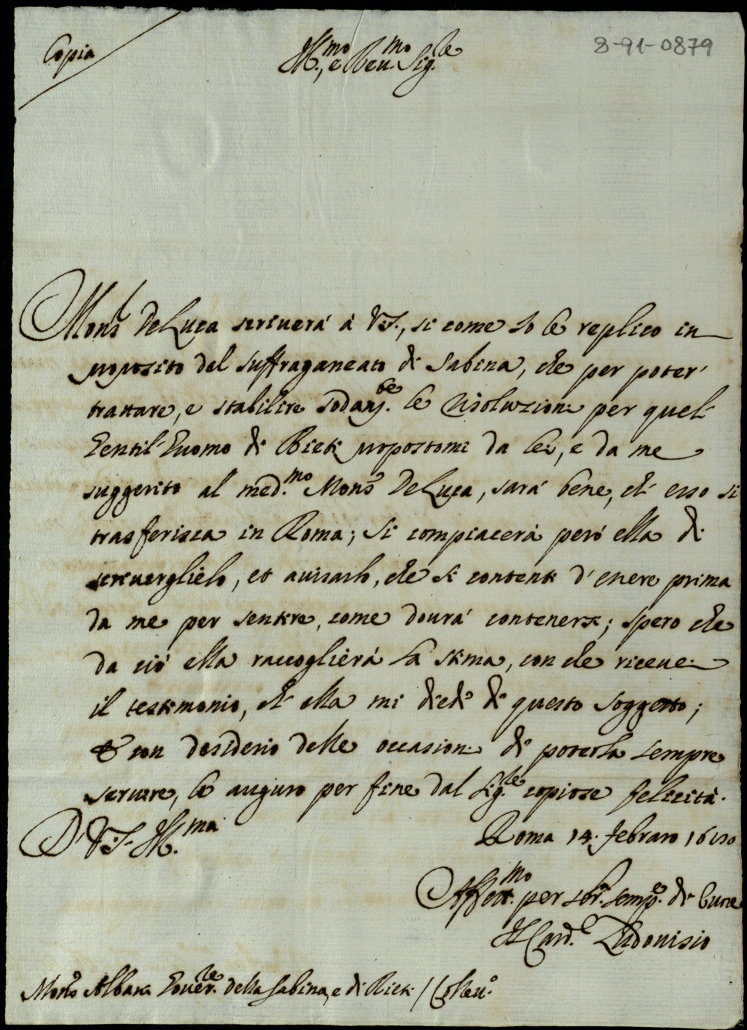 Copia
Ill.mo, e Reu.mo Sig.re
8-91-0879
Mons.r De Luca scriuerà à V.S., si come Io le replico in
proposito del suffraganeato di Sabina, che per poter
trattare, e stabilire la risoluzione per quel
Gentil'Huomo di Rieti propostomi da lei, e da me
suggerito al med.mo Mons.r De Luca, sarà bene, ch'esso si
trasferisca in Roma; Si compiacerà però ella di
scriuerglielo, et auisarlo, che si contenti d'essere prima
da me per sentire, come dourà contenersi; spero che
da ciò ella raccoglierà la stima, con che riceuei
il testimonio, ch'ella mi diede di questo Soggetto;
E con desiderio delle occasioni di poterla sempre
seruire, le auguro per fine dal Sig.re copiose felicità.
Roma 14. febraro
D. V.S. Ill.ma
Aff.mo per ser.la semp.e di Cuore
Il Card.e Ludouisio
Mons.r Albani Gouer.re della Sabina, e di Rieti